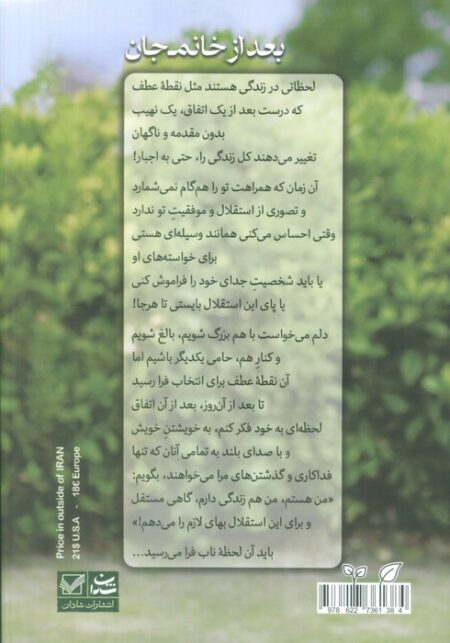 بعد از خانمـ‌جان
لحظاتی در زندگی هستند مثل نقطهٔ عطف
که درست بعد از یک اتفاق، یک نهیب
بدون مقدمه و ناگهان
تغییر می‌دهند کل زندگی را، حتی به اجبار!
آن زمان که همراهت تو را هم‌گام نمی‌شمارد
و تصوری از استقلال و موفقیتِ تو ندارد
وقتی احساس می‌کنی همانند وسیله‌ای هستی
برای خواسته‌های او
یا باید شخصیتِ جدای خود را فراموش کنی
یا پای این استقلال بایستی تا هرجا!
دلم می‌خواست با هم بزرگ شویم، بالغ شویم
و کنارِ هم، حامی یکدیگر باشیم اما
آن نقطهٔ عطف برای انتخاب فرا رسید
تا بعد از آن‌روز، بعد از آن اتفاق
لحظه‌ای به خود فکر کنم، به خویشتنِ خویش
و با صدای بلند به تمامی آنان که تنها
فداکاری و گذشتن‌های مرا می‌خواهند، بگویم:
«من هستم، من هم زندگی دارم، گاهی مستقل
و برای این استقلال بهای لازم را می‌دهم!»
باید آن لحظهٔ ناب فرا می‌رسید...
Price in outside of IRAN
21$ U.S.A - 18€ Europe
شادان
انتشارات شادان
9 786227 361384